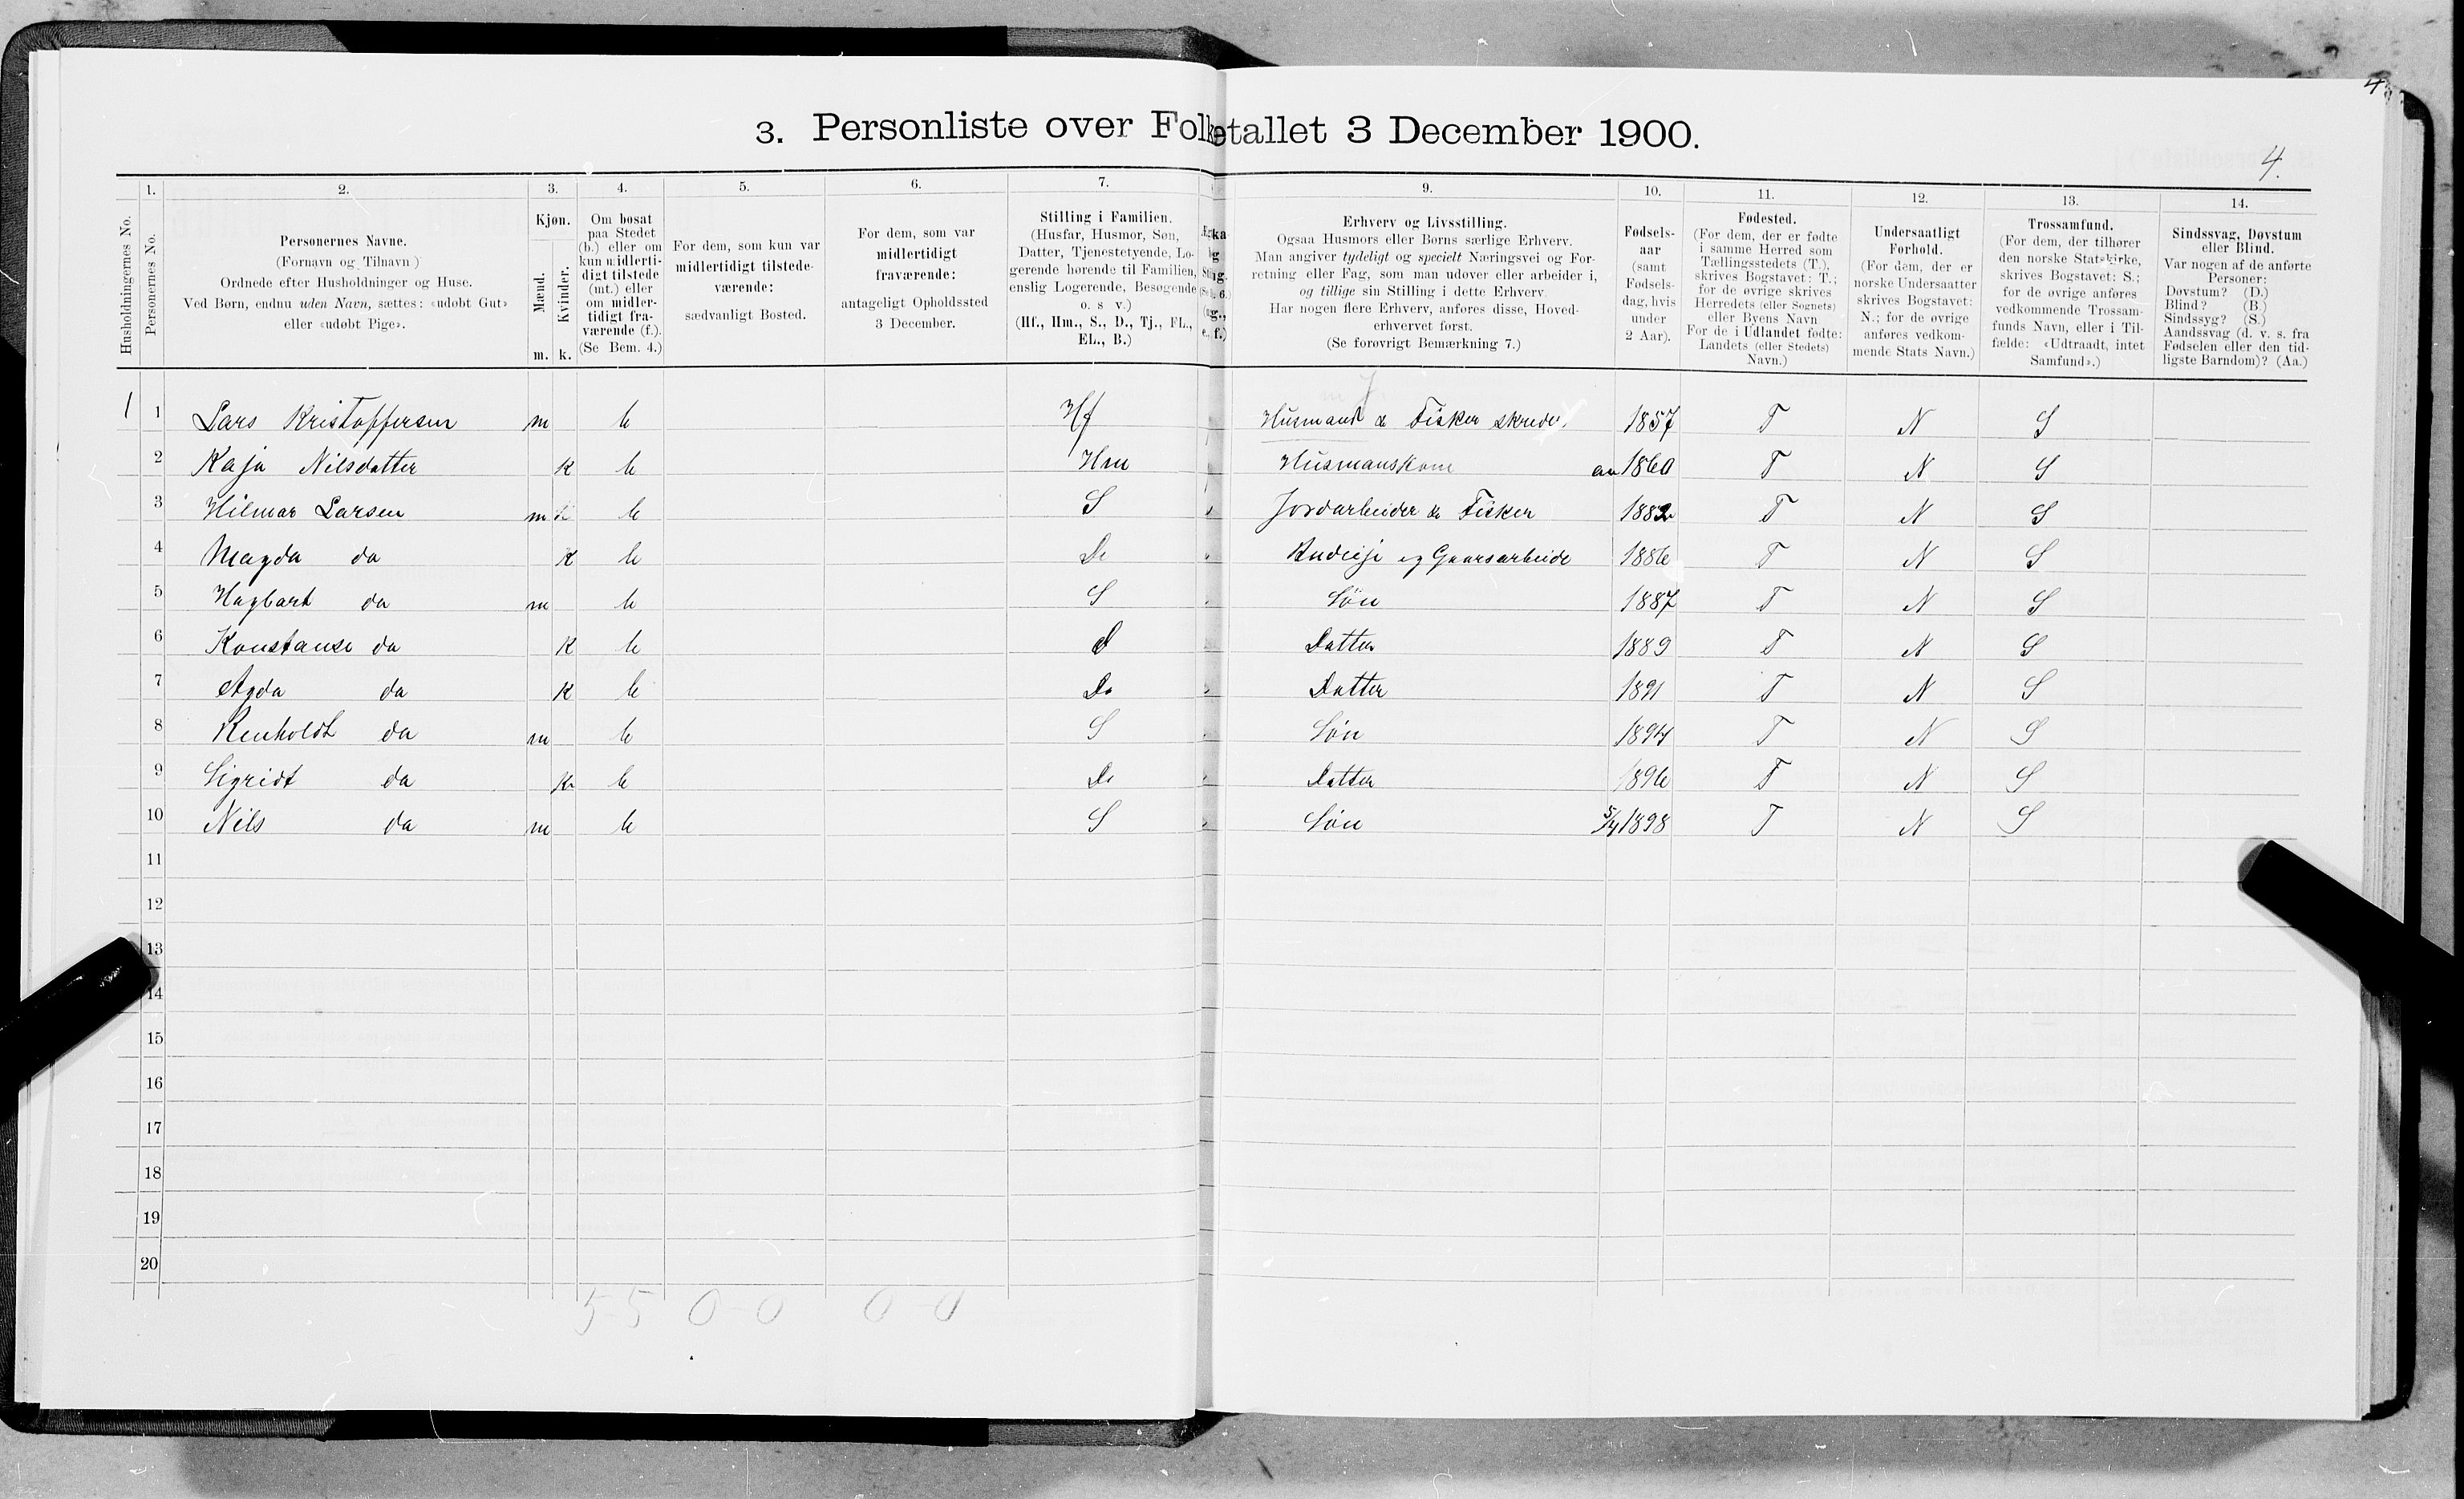 4
3. Personliste over Folketallet 3 December 1900.
4.
1. 2. 3. 4. 5. 6. 7. 9. 10. 11. 12. 13. 14.
Husholdningernes No.
Personernes No.
Personernes Navne.
(Fornavn og Tilnavn)
Ordnede efter Husholdninger og Huse.
Ved Børn, endnu uden Navn, sættes: «udøbt Gut»
eller «udøbt Pige».
Kjøn.
Mænd.
Kvinder.
m. k.
Om bosat
paa Stedet
(b.) eller om
kun midlerti-
digt tilstede
(mt.) eller
om midler-
tidigt fra-
værende (f.).
(Se Bem. 4.)
For dem, som kun var
midlertidigt tilstede-
værende:
sædvanligt Bosted.
For dem, som var
midlertidigt
fraværende:
antageligt Opholdssted
3 December.
Stilling i Familien.
(Husfar, Husmor, Søn,
Datter, Tjenestetyende, Lo-
gerende hørende til Familien,
enslig Logerende, Besøgende
o. s v.)
(Hf., Hm., S., D., Tj., FL.,
EL., B.)
Erhverv og Livsstilling.
Ogsaa Husmors eller Børns særlige Erhverv.
Man angiver tydeligt og specielt Næringsvei og For-
retning eller Fag, som man udøver eller arbeider i,
og tillige sin Stilling i dette Erhverv.
Har nogen flere Erhverv, anføres disse, Hoved-
erhvervet først.
(Se forøvrigt Bemærkning 7.)
Fødsels-
aar
(samt
Fødsels-
dag, hvis
under
2 Aar).
Fødested.
(For dem, der er fødte
i samme Herred som
Tællingsstedets (T.),
skrives Bogstavet: T.;
for de øvrige skrives
Herredets (eller Sognets)
eller Byens Navn
For de i Udlandet fødte:
Landets (eller Stedets)
Navn.)
Undersaatligt
Forhold.
(For dem, der er
norske Undersaatter
skrives Bogstavet:
N.; for de øvrige
anføres vedkom-
mende Stats Navn.)
Trossamfund.
(For dem, der tilhører
den norske Statskirke,
skrives Bogstavet: S.;
for de øvrige anføres
vedkommende Trossam-
funds Navn, eller i Til-
fælde: «Udtraadt, intet
Samfund».)
Sindssvag, Døvstum
eller Blind.
Var nogen af de anførte
Personer:
Døvstum? (D.)
Blind? (B.)
Sindssyg? (S.)
Aandssvag (d. v. s. fra
Fødselen eller den tid-
ligste Barndom)? (Aa.)
1 1 Lars Kristoffersen m b Hf Husmand & Fisker 1857 T N S
2 Kaja Nilsdatter k b Hm Husmanskone 1860 T N S
3 Hilmar Larsen m b S Jordarbeider & Fisker 1882 T N S
4 Magda do k b D Gaarsarbeide 1886 T N S
5 Hagbart do m b S Søn 1887 T N S
6 Konstanse do k b d Datter 1889 T N S
7 Agda do k b D Datter 1891 T N S
8 Renholdt do m b S Søn 1894 T N S
9 Sigridt do k b D Datter 1896 T N S
10 Nils do m b S Søn 5/4 1898 T N S
11
12
13
14
15
16
17
18
19
20
5-5 0-0 0-0